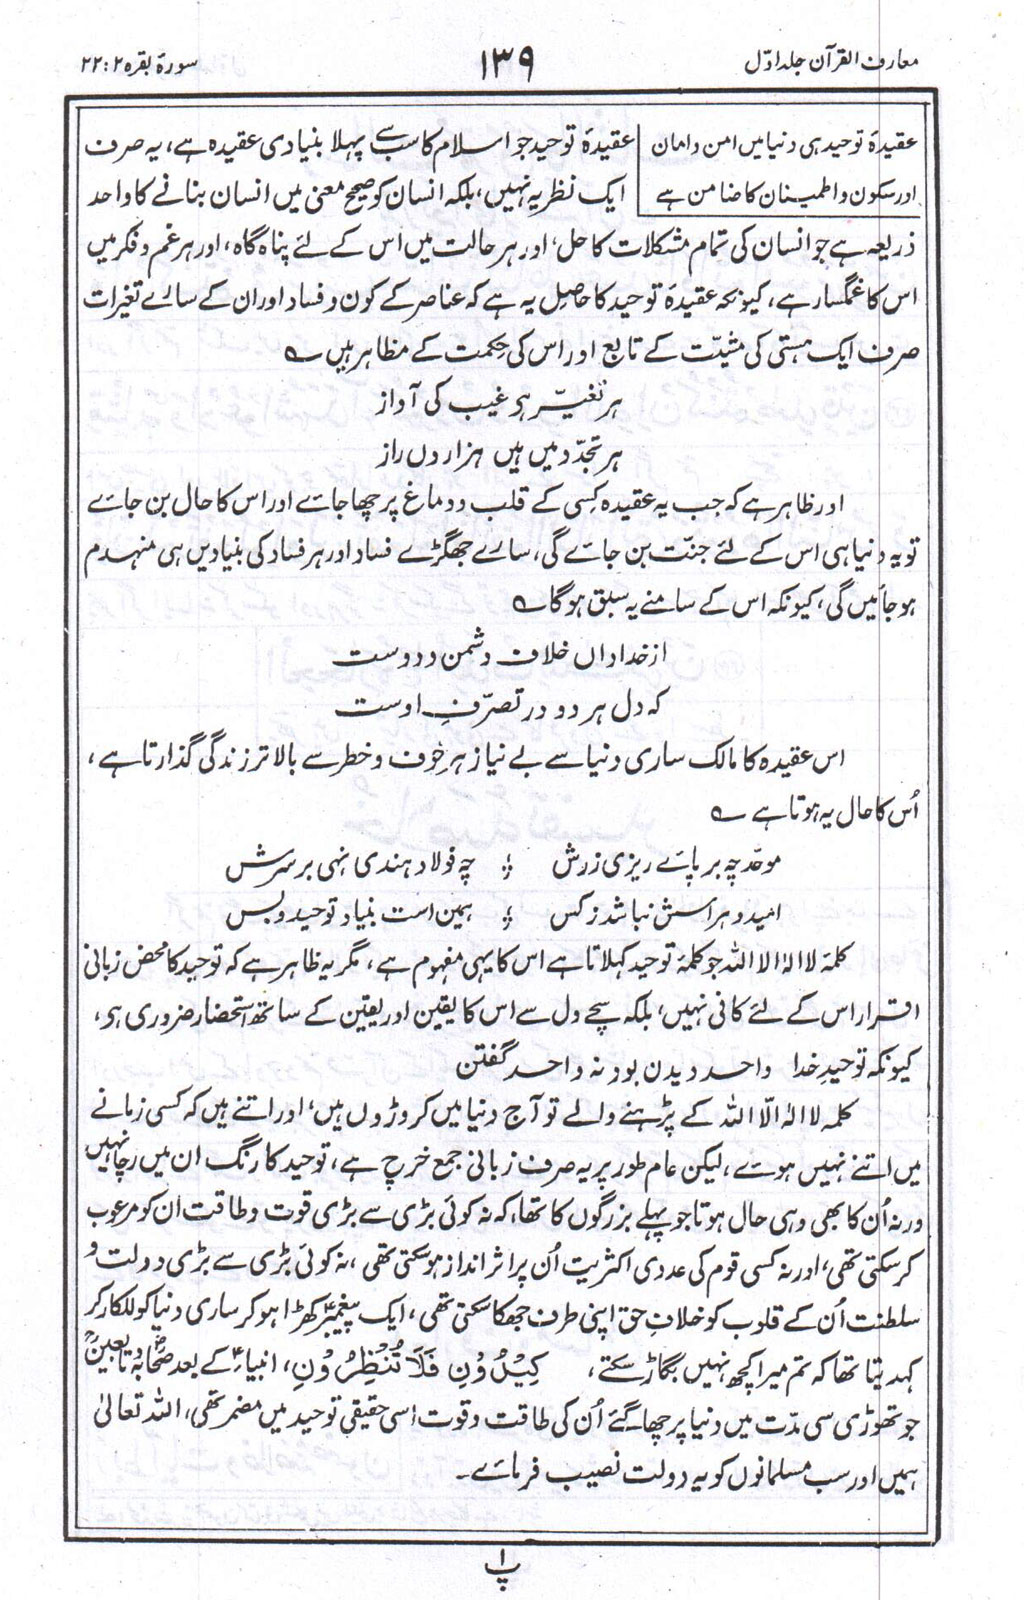 معارف القرآن جلد اوّل
۱۳۹
سورۂ بقرہ ۲ : ۲۲
عقیدۂ توحید ہی دنیا میں امن و امان
اور سکون و اطمینان کا ضامن ہے
عقیدۂ توحید جو اسلام کا سب سے پہلا بنیادی عقیدہ ہے، یہ صرف
ایک نظریہ نہیں، بلکہ انسان کو صحیح معنی میں انسان بنانے کا واحد
ذریعہ ہے جو انسان کی تمام مشکلات کا حل، اور ہر حالت میں اس کے لئے پناہ گاہ، اور ہر غم و فکر میں
اس کا غمگسار ہے، کیونکہ عقیدۂ توحید کا حاصل یہ ہے کہ عناصر کے کون و فساد اور ان کے سارے تغیرات
صرف ایک ہستی کی مشیّت کے تابع اور اس کی حکمت کے مظاہر ہیں ؎
ہر تغیّر ہے غیب کی آواز
ہر تجدّد میں ہیں ہزاروں راز
اور ظاہر ہے کہ جب یہ عقیدہ کسی کے قلب و دماغ پر چھا جائے اور اس کا حال بن جائے
تو یہ دنیا ہی اس کے لئے جنّت بن جائے گی، سارے جھگڑے فساد اور ہر فساد کی بنیادیں ہی منہدم
ہو جائیں گی، کیونکہ اس کے سامنے یہ سبق ہوگا ؎
از خداداں خلاف دشمن و دوست
کہ دل ہر دو در تصرّفِ اوست
اس عقیدہ کا مالک ساری دنیا سے بے نیاز ہر خوف و خطر سے بالاتر زندگی گذارتا ہے،
اُس کا حال یہ ہوتا ہے ؎
موحّد چہ بر پائے ریزی زرش ؛ چہ فولاد ہندی نہی بر سرش
امید و ہراسش نباشد ز کس ؛ ہمین است بنیاد توحید و بس
کلمۂ لا الٰہ الا اللہ جو کلمۂ توحید کہلاتا ہے اس کا یہی مفہوم ہے، مگر یہ ظاہر ہے کہ توحید کا محض زبانی
اقرار اس کے لئے کافی نہیں، بلکہ سچے دل سے اس کا یقین اور یقین کے ساتھ استحضار ضروری ہی،
کیونکہ توحیدِ خدا واحد دیدن بود نہ واحد گفتن
کلمہ لا الٰہ الّا اللہ کے پڑہنے والے تو آج دنیا میں کروڑوں ہیں، اور اتنے ہیں کہ کسی زمانے
میں اتنے نہیں ہوئے، لیکن عام طور پر یہ صرف زبانی جمع خرچ ہے، توحید کا رنگ ان میں رچا نہیں
ورنہ اُن کا بھی وہی حال ہوتا جو پہلے بزرگوں کا تھا، کہ نہ کوئی بڑی سے بڑی قوت و طاقت ان کو مرعوب
کر سکتی تھی، اور نہ کسی قوم کی عددی اکثریت اُن پر اثر انداز ہو سکتی تھی، نہ کوئی بڑی سے بڑی دولت و
سلطنت اُن کے قلوب کو خلافِ حق اپنی طرف جھکا سکتی تھی، ایک پیغمبرؑ کھڑا ہو کر ساری دنیا کو للکار کر
کہہ دیتا تھا کہ تم میرا کچھ نہیں بگاڑ سکتے، كِيْدُوْنِ فَلَا تُنْظِرُوْنِ، انبیاءؑ کے بعد صحابہؓ و تابعینؒ
جو تھوڑی سی مدّت میں دنیا پر چھا گئے اُن کی طاقت و قوت اسی حقیقی توحید میں مضمر تھی، اللہ تعالیٰ
ہمیں اور سب مسلمانوں کو یہ دولت نصیب فرمائے۔
پ۱